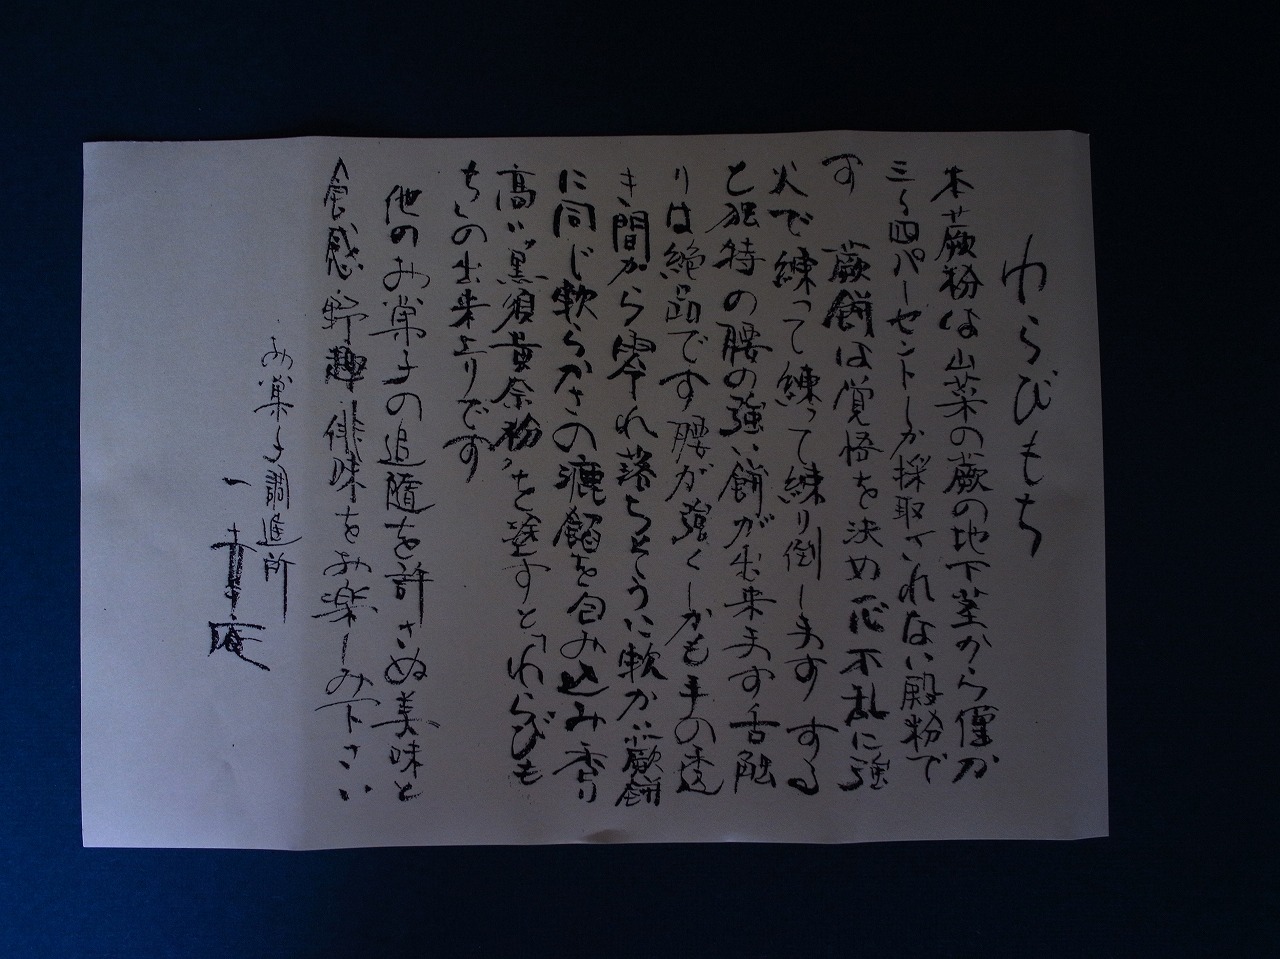 わらびもち
本蕨粉は山菜の蕨の地下茎から僅か
三〜四パーセントしか採取されない殿粉で
す　蕨餅は覚悟を決め一心不乱に強
火で練って練って練り倒します　する
と独特の腰の強い餅が出来ます舌触
りは絶品です腰が強くしかも手の透
き間から零れ落ちそうに軟かい蕨餅
に同じ軟らかさの漉餡を包み込み香り
高い〝黒須黄奈粉〟を塗すと「わらびも
ち」の出来上りです
他のお菓子の追随を許さぬ美味と
食感・野趣・俳味をお楽しみ下さい
お菓子調進所
一幸庵